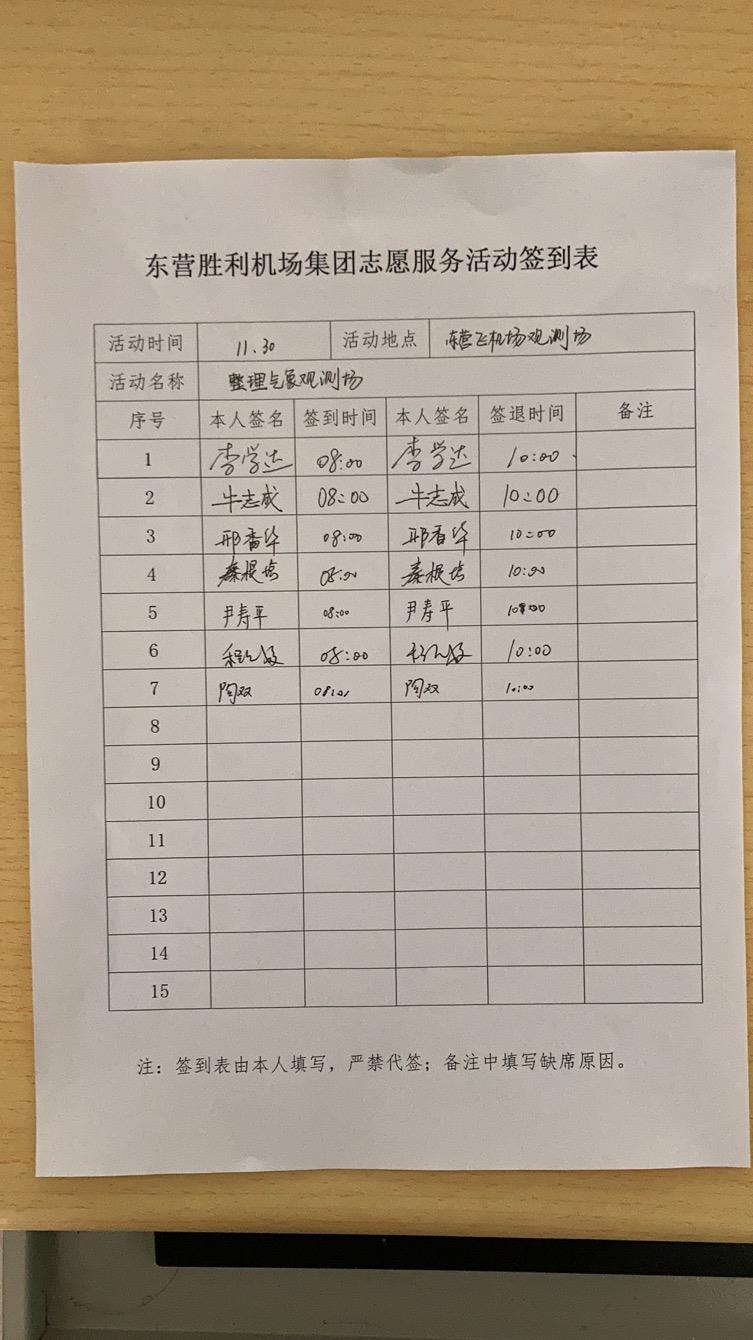 东营胜利机场集团志愿服务活动签到表
活动时间 11.30 活动地点 东营飞机场观测场
活动名称 整理气象观测场
序号 本人签名 签到时间 本人签名 签退时间 备注
1 李学达 08:00 李学达 10:00
2 牛志成 08:00 牛志成 10:00
3 邢香华 08:00 邢香华 10:00
4 秦根培 08:00 秦根培 10:00
5 尹寿平 08:00 尹寿平 10:00
6 08:00 10:00
7 陶双 08:00 陶双 10:00
8
9
10
11
12
13
14
15
注：签到表由本人填写，严禁代签；备注中填写缺席原因。